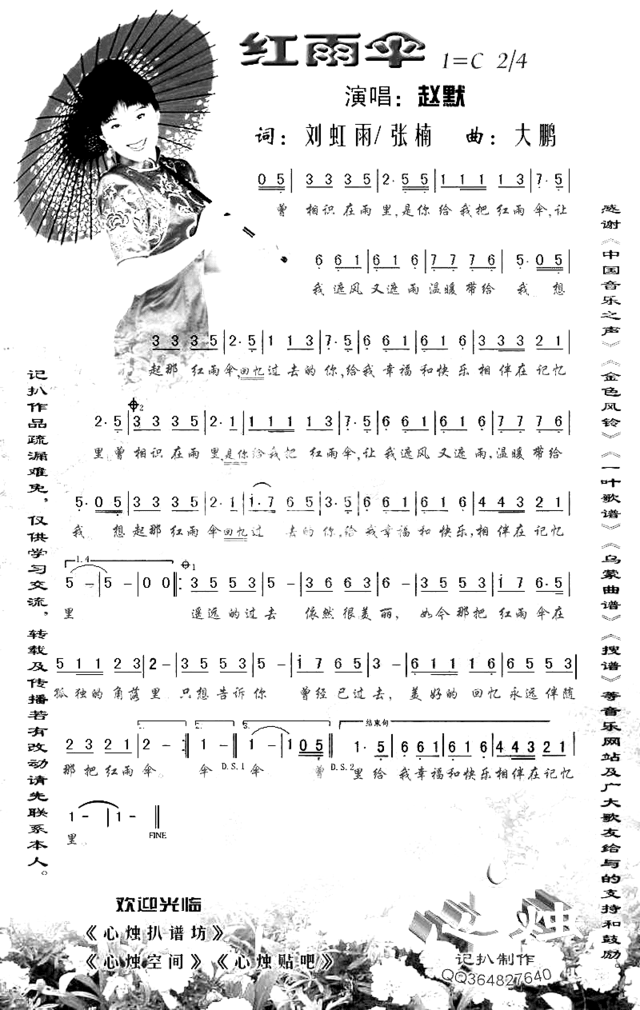 红雨伞 1=C 2/4
演唱：赵默
词：刘虹雨/张楠 曲：大鹏
0 5 | 3 3 3 5 | 2· 5 | 1 1 1 1 3 | 7· 5 |
曾 相识在雨里,是你给我把红雨伞,让
6 6 1 | 6 2 1 6 | 7 7 7 6 | 5· 0 5 |
我遮风又遮雨温暖带给 我 想
3 3 3 5 | 2· 5 | 1 1 3 | 7· 5 | 6 6 1 | 6 1 6 | 3 3 3 2 1 |
起那红雨伞,回忆过去的你,给我幸福和快乐相伴在记忆
2· 5 | 3 3 3 5 | 2· 1 | 1 1 1 3 | 7· 5 | 6 6 1 | 6 2 1 6 | 7 7 7 6 |
里曾相识在雨里,是你给我把红雨伞,让我遮风又遮雨,温暖带给
5· 0 5 | 3 3 3 5 | 2· 1 | i· 7 6 5 | 3 5 | 6 6 1 | 6 1 6 | 4 4 3 2 1 |
我 想起那红雨伞回忆过 去的你,给我幸福和快乐,相伴在记忆
1. 4.
5 - | 5 - | 5 - 0 0 | 3 5 5 3 | 5 - | 3 6 6 3 | 6 - | i i 7 6· 5 |
里 遥远的过去 依然很美丽, 如今那把红雨伞在
5 1 1 2 3 | 2 - | 3 5 5 3 | 5 - | i 7 6 5 | 3 - | 6 1 1 1 6 | 6 5 5 3 5 |
孤独的角落里 只想告诉你 曾经已过去, 美好的回忆永远伴随
2. 5. 结束句
2 2 3 2 1 | 2 - | 1 - | 1 - | 1 0 0 5 | 1· 5 | 6 6 1 | 6 1 6 | 4 4 3 2 1 |
那把红雨伞 伞 D.S.1 伞 曾 D.S.2 里给我幸福和快乐相伴在记忆
1 - | 1 - ‖
里 FINE
感谢《中国音乐之声》《金色风铃》《一叶歌谱》《乌蒙曲谱》《搜谱》等音乐网站及广大歌友给与的支持和鼓励
记扒作品疏漏难免，仅供学习交流，转载及传播若有改动请先联系本人。
欢迎光临
《心烛扒谱坊》
《心烛空间》《心烛贴吧》
心烛
记扒制作
QQ364827640